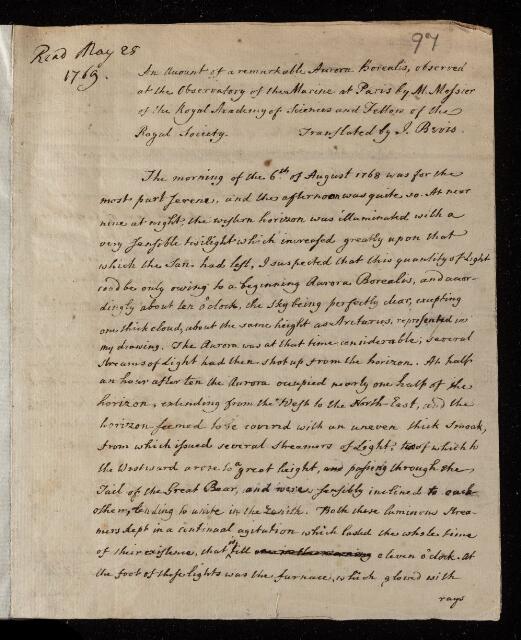 Read May 25
1769.
97
An Account of a remarkable Aurora Borealis, observed
at the Observatory of the Marine at Paris by M. Messier
of the Royal Academy of Sciences and Fellow of the
Royal Society. Translated by J. Bevis.
The morning of the 6th of August 1768 was for the
most part serene, and the afternoon was quite so. At near
nine at night the western horizon was illuminated with a
very sensible twilight which increased greatly upon that
which the Sun had left, I suspected that this quantity of Light
could be only owing to a beginning Aurora Borealis, and accor-
dingly about ten o'clock, the sky being perfectly clear, excepting
one thick cloud, about the same height as Arcturus, represented in
my drawing. The Aurora was at that time considerable, several
Streams of Light had then shot up from the horizon. At half
an hour after ten the Aurora occupied nearly one half of the
horizon, extending from the West to the North-East, and the
horizon seemed to be covered with an uneven thick Smoak,
from which issued several streamers of Light; two of which to
the Westward arose to a great height, and passing through the
Tail of the Great Bear, and were sensibly inclined to each
other, tending to unite in the Zenith. Both these luminous Strea-
mers kept in a continual agitation which lasted the whole time
of their existence, that is till eleven o'clock. At
the foot of these lights was the furnace, which glowed with
rays